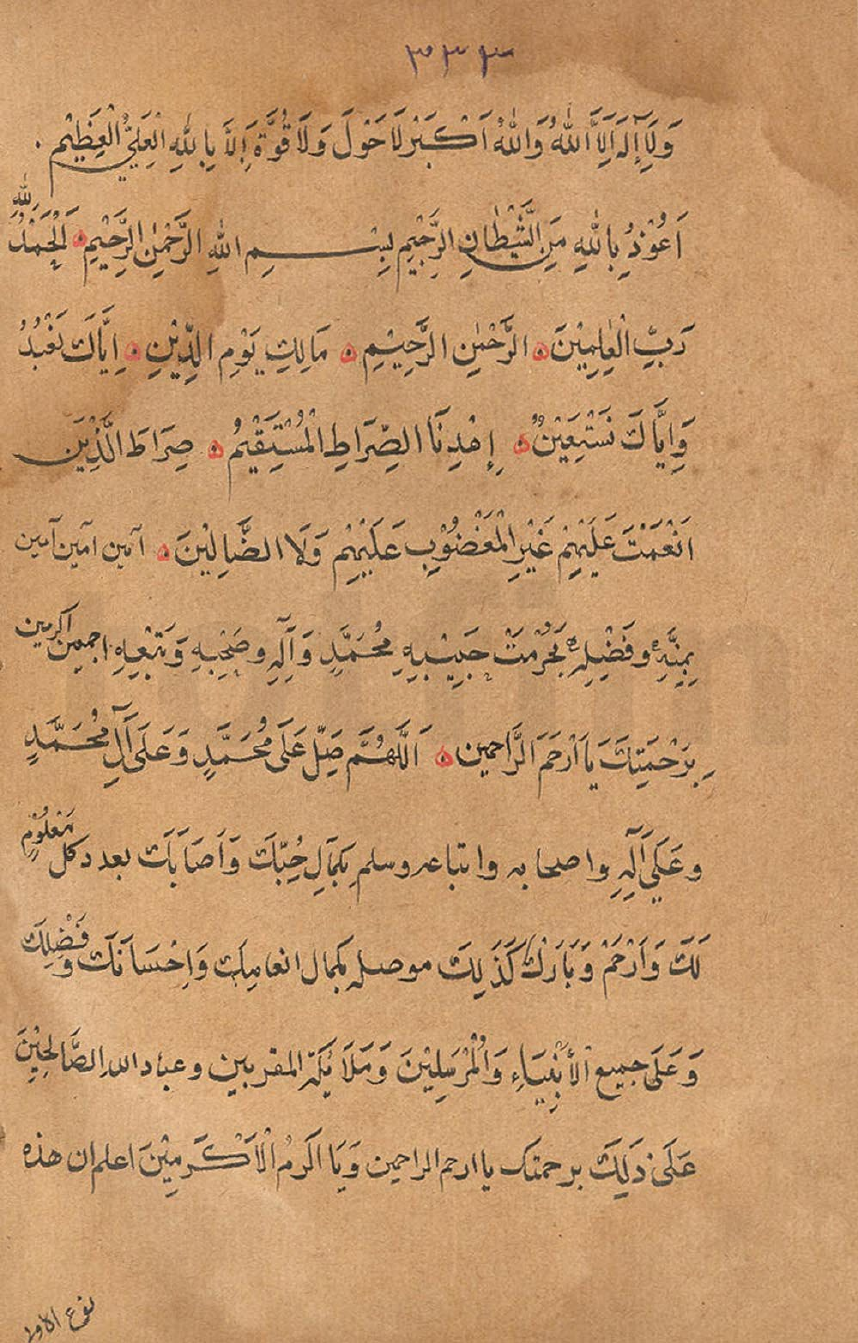 ٣٣٣
وَلَآ إِلٰهَ اِلَّا اللّٰهُ وَاللّٰهُ اَكْبَرْ لَا حَوْلَ وَلَا قُوَّةَ اِلَّا بِاللّٰهِ الْعَلِيِّ الْعَظِيْمِ .
اَعُوْذُ بِاللّٰهِ مِنَ الشَّيْطَانِ الرَّجِيْمِ بِسْمِ اللّٰهِ الرَّحْمٰنِ الرَّحِيْمِ ه اَلْحَمْدُ لِلّٰهِ
رَبِّ الْعٰلَمِيْنَ ه الرَّحْمٰنِ الرَّحِيْمِ ه مَالِكِ يَوْمِ الدِّيْنِ ه اِيَّاكَ نَعْبُدُ
وَاِيَّاكَ نَسْتَعِيْنُ ه اِهْدِنَا الصِّرَاطَ الْمُسْتَقِيْمَ ه صِرَاطَ الَّذِيْنَ
اَنْعَمْتَ عَلَيْهِمْ غَيْرِ الْمَغْضُوْبِ عَلَيْهِمْ وَلَا الضَّالِيْنَ ه آمين آمين آمين
بِمَنِّهِ وَفَضْلِهِ بَحُرْمَتْ حَبِيْبِهِ مُحَمَّدٍ وَآلِهِ وَصَحْبِهِ وَتَبَعِهِ اجمعين اكرمين
بِرَحْمَتِكَ يَا اَرْحَمَ الرَّاحمين ه اَللّٰهُمَّ صَلِّ عَلَى مُحَمَّدٍ وَعَلَى آلِ مُحَمَّدٍ
وعَلَى آلِهِ واصحابه واتباعه وسلم بِكَمَالِ حُبِّكَ وَاَصَابَكَ بعدد كل مَعْلُوْمٍ
لَكَ وَارْحَمْ وَبَارِكْ كَذَلِكَ موصله بكمال انعامك وَاِحْسَانَكَ وَفَضْلِكَ
وَعَلَى جميع الأَنْبِيَاءِ وَالْمُرْسَلِيْنَ وَمَلَائِكَةِ المقربين وعباد الله الصَّالِحِيْنَ
عَلَى ذَلِكَ برحمتك يا ارحم الراحمين وَيَا اكرمُ الْاَكْرَمِيْنَ اعلم ان هذه
نوع الاول